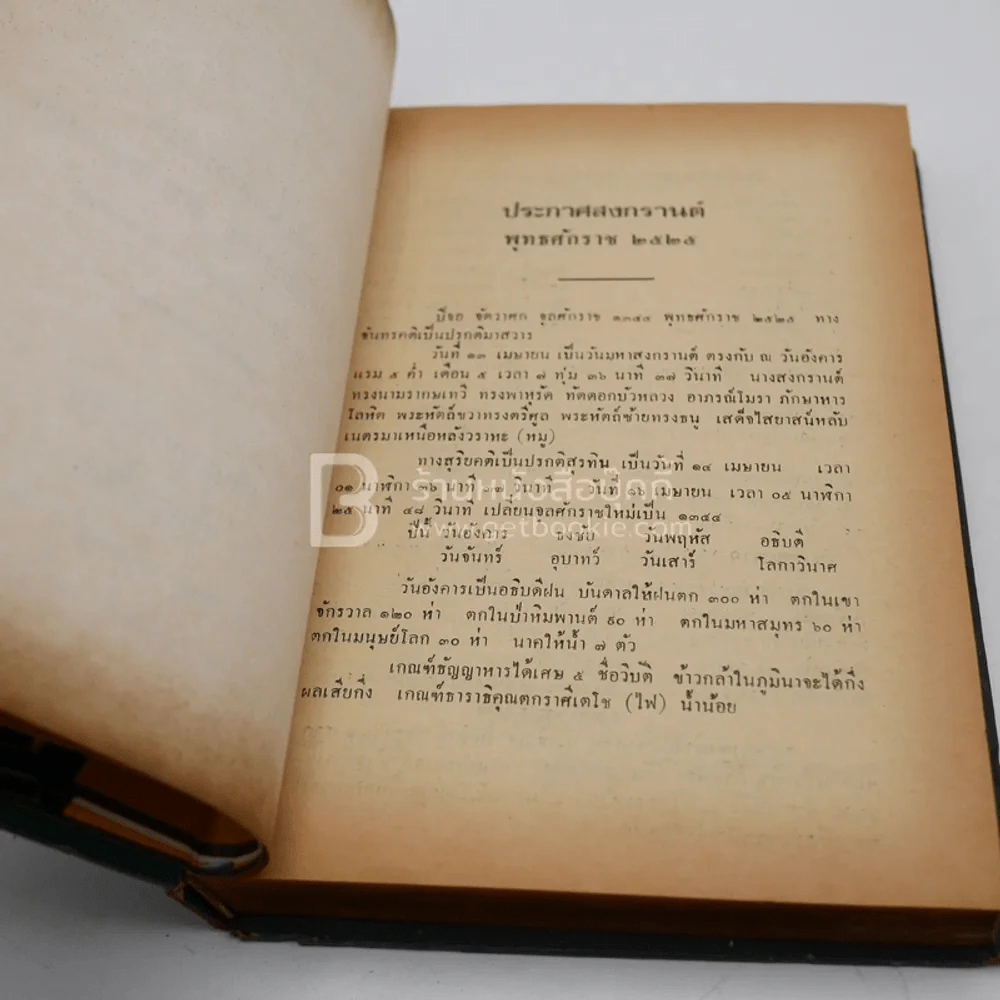 ประกาศสงกรานต์
พุทธศักราช ๒๕๒๕
ปีจอ จัตวาศก จุลศักราช ๑๓๔๔ พุทธศักราช ๒๕๒๕ ทาง
จันทรคติเป็นปรกติมาสวาร
วันที่ ๑๓ เมษายน เป็นวันมหาสงกรานต์ ตรงกับ ณ วันอังคาร
แรม ๕ ค่ำ เดือน ๕ เวลา ๗ ทุ่ม ๓๖ นาที ๓๗ วินาที นางสงกรานต์
ทรงนามรากษเทวี ทรงพาหุรัด ทัดดอกบัวหลวง อาภรณ์โมรา ภักษาหาร
โลหิต พระหัตถ์ขวาทรงตรีศูล พระหัตถ์ซ้ายทรงธนู เสด็จไสยาสน์หลับ
เนตรมาเหนือหลังวราหะ (หมู)
ทางสุริยคติเป็นปรกติสุรทิน เป็นวันที่ ๑๔ เมษายน เวลา
๐๑ นาฬิกา ๓๖ นาที ๓๗ วินาที วันที่ ๑๖ เมษายน เวลา ๐๕ นาฬิกา
๒๕ นาที ๔๘ วินาที เปลี่ยนจุลศักราชใหม่เป็น ๑๓๔๔
ปีนี้ วันอังคาร ธงชัย วันพฤหัส อธิบดี
วันจันทร์ อุบาทว์ วันเสาร์ โลกาวินาศ
วันอังคารเป็นอธิบดีฝน บันดาลให้ฝนตก ๓๐๐ ห่า ตกในเขา
จักรวาล ๑๒๐ ห่า ตกในป่าหิมพานต์ ๙๐ ห่า ตกในมหาสมุทร ๖๐ ห่า
ตกในมนุษย์โลก ๓๐ ห่า นาคให้น้ำ ๗ ตัว
เกณฑ์ธัญญาหารได้เศษ ๕ ชื่อวิบัติ ข้าวกล้าในภูมินาจะได้กึ่ง
ผลเสียกึ่ง เกณฑ์ธาราธิคุณตกราศีเตโช (ไฟ) น้ำน้อย
B ร้านหนังสือบุ๊คกี้
www.getbookie.com